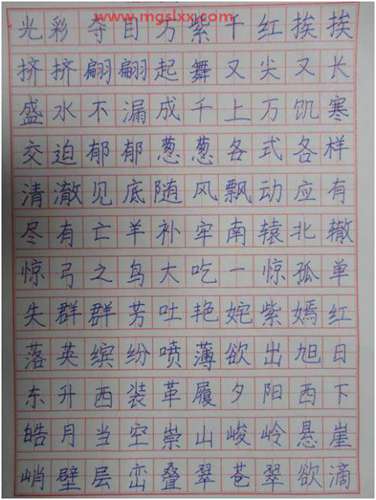 www.mgslxx.com
光彩夺目万紫千红挨挨
挤挤翩翩起舞又尖又长
盛水不漏成千上万饥寒
交迫郁郁葱葱各式各样
清澈见底随风飘动应有
尽有亡羊补牢南辕北辙
惊弓之鸟大吃一惊孤单
失群群芳吐艳姹紫嫣红
落英缤纷喷薄欲出旭日
东升西装革履夕阳西下
皓月当空崇山峻岭悬崖
峭壁层峦叠翠苍翠欲滴